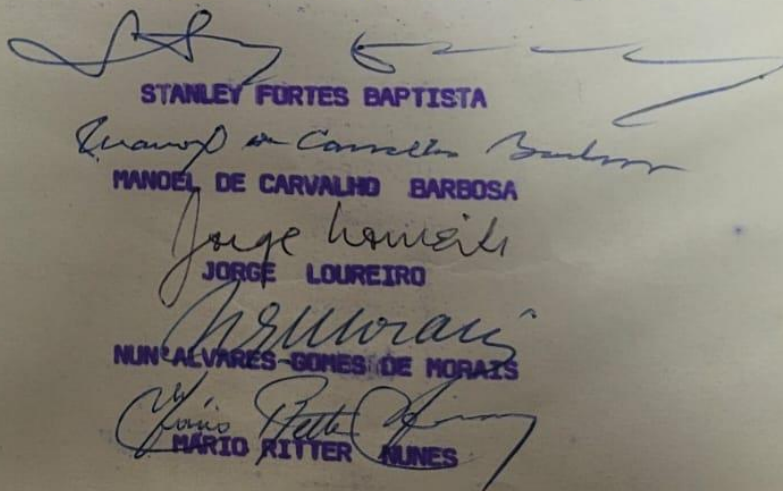 STANLEY FORTES BAPTISTA
Manoel de Carvalho Barbosa
MANOEL DE CARVALHO BARBOSA
Jorge Loureiro
JORGE LOUREIRO
NUN'ALVARES GOMES DE MORAIS
Mário Ritter Nunes
MÁRIO RITTER NUNES